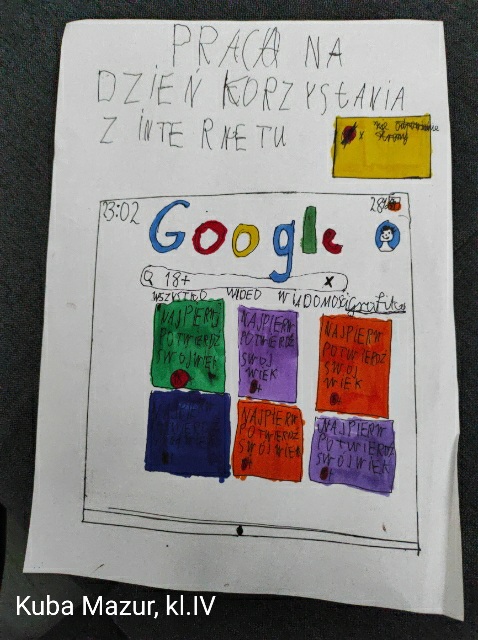 PRACA NA
DZIEŃ KORZYSTANIA
Z INTERNETU
23:02
28%
Google
18+ x
WSZYSTKO WIDEO WIADOMOŚCI grafika
NAJPIERW
POTWIERDZ
SWÓJ WIEK
NAJPIERW
POTWIERDZ
SWÓJ
WIEK
NAJPIERW
POTWIERDZ
SWÓJ
WIEK
NAJPIERW
POTWIERDZ
SWÓJ WIEK
NAJPIERW
POTWIERDZ
SWÓJ WIEK
Kuba Mazur, kl.IV